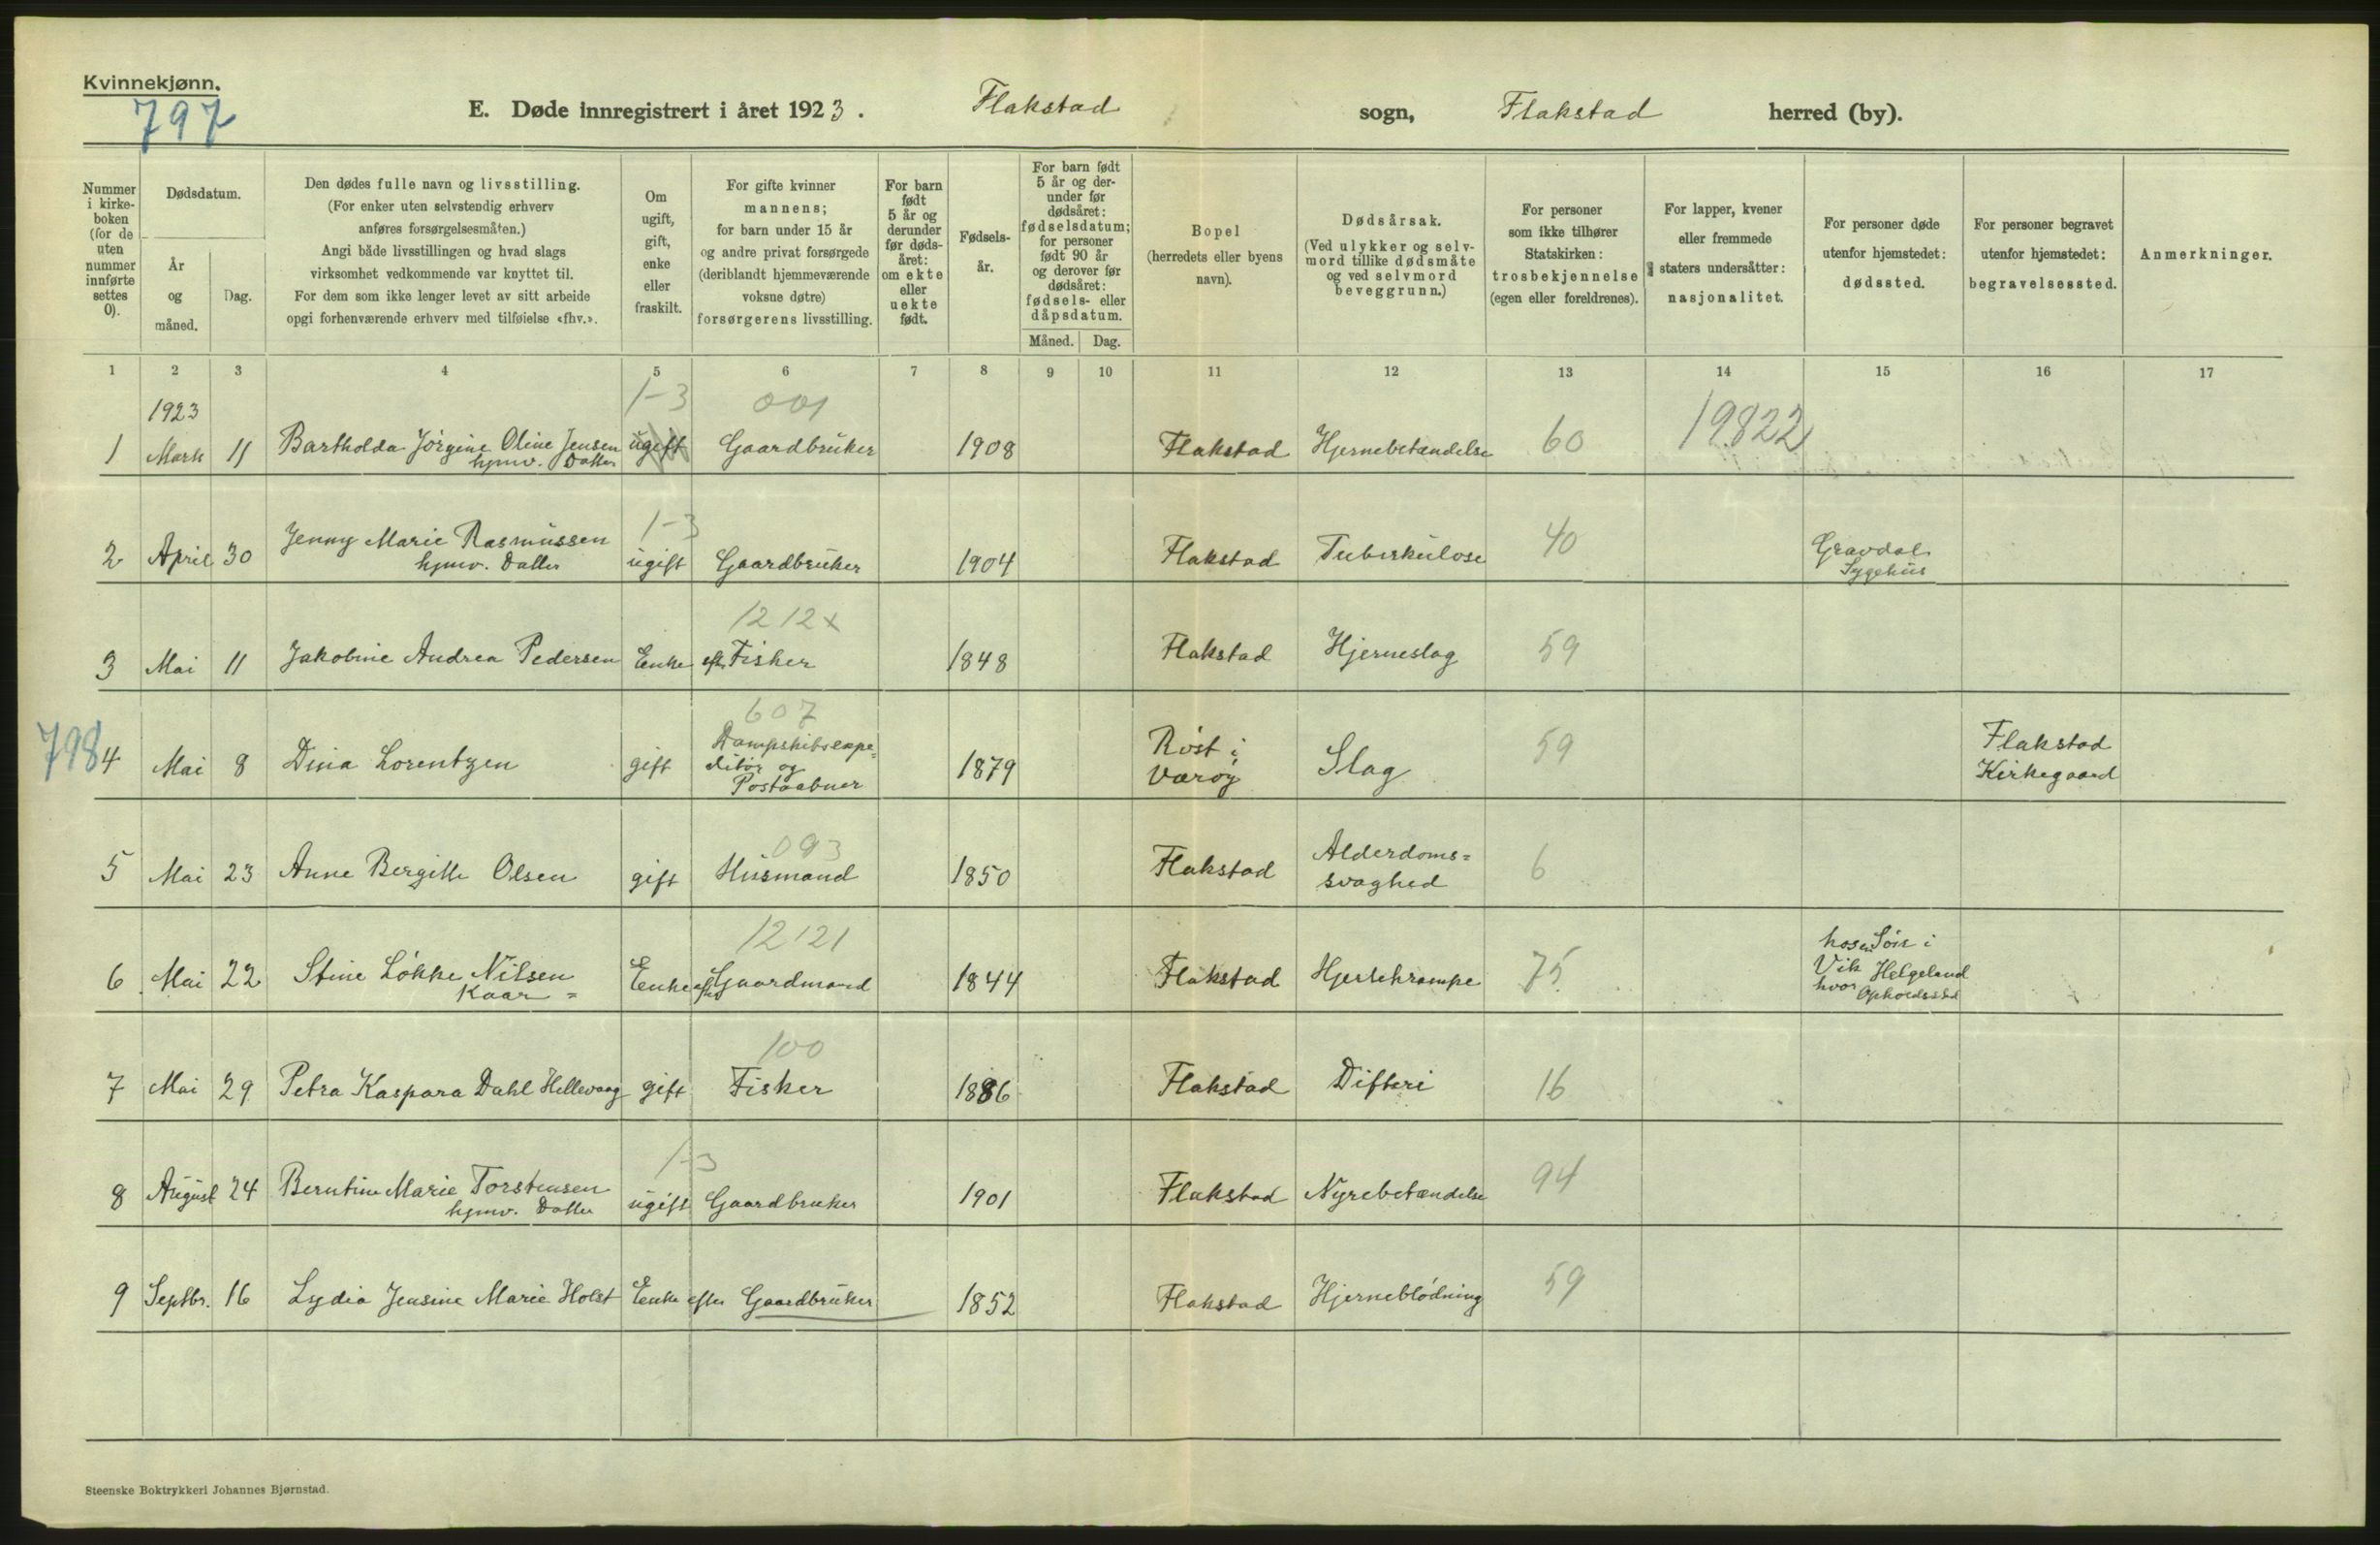 Kvinnekjønn.
797
E. Døde innregistrert i året 1923. Flakstad sogn, Flakstad herred (by).
Nummer i kirke-boken (for de uten nummer innførte settes 0).
Dødsdatum.
År og måned.
Dag.
Den dødes fulle navn og livsstilling.
(For enker uten selvstendig erhverv
anføres forsørgelsesmåten.)
Angi både livsstillingen og hvad slags
virksomhet vedkommende var knyttet til.
For dem som ikke lenger levet av sitt arbeide
opgi forhenværende erhverv med tilføielse «fhv.».
Om
ugift,
gift,
enke
eller
fraskilt.
For gifte kvinner
mannens;
for barn under 15 år
og andre privat forsørgede
(deriblandt hjemmeværende
voksne døtre)
forsørgerens livsstilling.
For barn
født
5 år og
derunder
før døds-
året:
om ekte
eller
uekte
født.
Fødsels-
år.
For barn født
5 år og der-
under før
dødsåret:
fødselsdatum;
for personer
født 90 år
og derover før
dødsåret:
fødsels- eller
dåpsdatum.
Måned. Dag.
Bopel
(herredets eller byens
navn).
Dødsårsak.
(Ved ulykker og selv-
mord tillike dødsmåte
og ved selvmord
beveggrunn.)
For personer
som ikke tilhører
Statskirken:
trosbekjennelse
(egen eller foreldrenes).
For lapper, kvener
eller fremmede
staters undersåtter:
nasjonalitet.
For personer døde
utenfor hjemstedet:
dødssted.
For personer begravet
utenfor hjemstedet:
begravelsessted.
Anmerkninger.
1 2 3 4 5 6 7 8 9 10 11 12 13 14 15 16 17
1923 1-3 001
1 Mars 11 Bartholda Jörgine Oline Jensen ugift Gaardbruker 1908 Flakstad Hjernebetændelse 60 19822
hjmv. Datter
1-3
2 April 30 Jenny Marie Rasmussen ugift Gaardbruker 1904 Flakstad Tuberkulose 40 Gravdal
hjmv. Datter Sygehus
1212x
3 Mai 11 Jakobine Andrea Pedersen Enke eft. Fisker 1848 Flakstad Hjerneslag 59
607
798 4 Mai 8 Dina Lorentzen gift Dampskibsexpe=
ditör og
Postaabner 1879 Röst i
Værøy Slag 59 Flakstad
Kirkegaard
093
5 Mai 23 Anne Bergitte Olsen gift Husmand 1850 Flakstad Alderdoms=
svaghed 6
12121
6 Mai 22 Stine Løkke Nilsen Enke eft. Gaardmand 1844 Flakstad Hjertekrampe 75 hos Sön i
Kaar= Vik Helgeland
hvor Opholdssted
100
7 Mai 29 Petra Kaspara Dahl Hellevaag gift Fisker 1886 Flakstad Difteri 16
1-3
8 August 24 Berntine Marie Torstensen ugift Gaardbruker 1901 Flakstad Nyrebetændelse 94
hjmv. Datter
9 Septbr. 16 Lydia Jensine Marie Holst Enke efter Gaardbruker 1852 Flakstad Hjerneblödning 59
Steenske Boktrykkeri Johannes Bjørnstad.